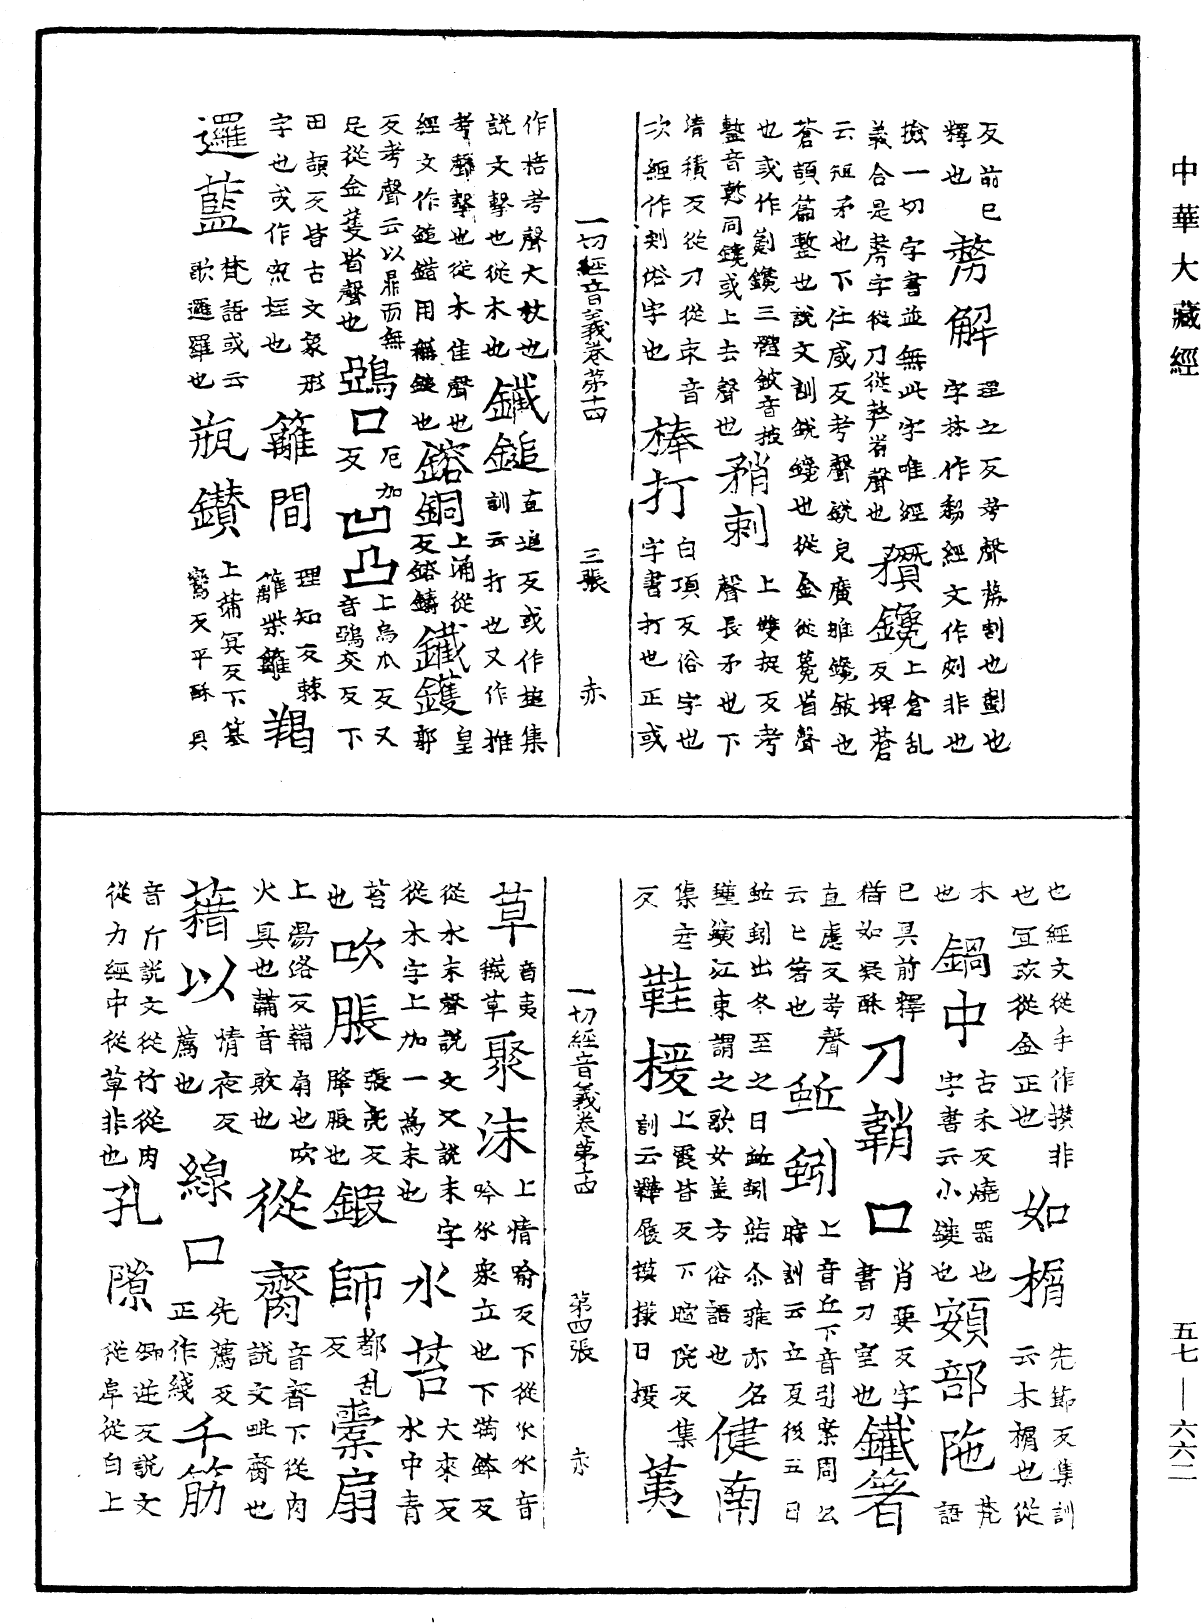 中華大藏經
反前已
釋也
剺解
理之反考聲剺割也劃也
字林作剺經文作刻非也
撿一切字書並無此字唯經
義合是剺字從刀從㪿省聲也
穳鑱
上倉亂反埤蒼
云短矛也下仕咸反考聲銳兒廣雅鑱鈹也
蒼頡篇鏨也說文訓銳鑱也從金從毚省聲
也或作劖鑱三體鈹音披
鏨音慙同鑱或上去聲也
矟刺
上雙捉反考聲長矛也下
清積反從刀從朿音
次經作刾俗字也
棒打
白項反俗字也
字書打也正或
一切經音義卷第十四　三張　赤
作棓考聲大杖也
說文擊也從木也
鐵鎚
直追反或作搥集
訓云打也又作推
考聲擊也從木隹聲也
經文作鎚錯用稱鎚也
鎔銅
上涌從反鎔鑄
鐵鑊
皇郭
反考聲云以鼎而無
足從金蒦省聲也
鵶口
厄加反
凹凸
上烏瓜反又音鵶交反下
田頡反皆古文象形
字也或作窊垤也
籬間
理知反棘
籬柴籬
羯
邏藍
梵語或云
歌邏羅也
瓶鑽
上蒲冥反下纂
鸞反平酥具
也經文從手作攢非
也宜改從金正也
如楔
先節反集訓
云木楔也從
木
也
鍋中
古禾反燒器也
字書云小鑊也
頞部陁
梵語
已具前釋
猶如疑酥
刀鞘口
肖要反字
書刀室也
鐵箸
直慮反考聲
云匕箸也
蚯蚓
上音丘下音引案周公
時訓云立夏後五日
蚯蚓出冬至之日蚯蚓結尒雅亦名
螼螾江東謂之歌女並方俗語也
健南
集音反
鞋楥
上霞皆反下暄院反集
訓云鞾履摸㨾曰楥
荑
一切經音義卷第十四　第四張　赤
草
音夷
穢草
聚沫
上情喻反下從㐺㐺音
吟㐺衆立也下滿鉢反
從水末聲說文又說末字
從木字上加一為末也
水苔
大來反
水中青
苔
也
吹脹
張亮反
脹脹也
鍛師
都亂反
橐扇
上湯洛反韛扇也吹
火具也韛音敗也
從臍
音齊下從肉
說文毗臍也
藉以
情夜反
薦也
線口
先薦反
正作綫
千筋
音斤說文從竹從肉
從力經中從草非也
孔隙
卿逆反說文
從阜從白上
五七—六六二